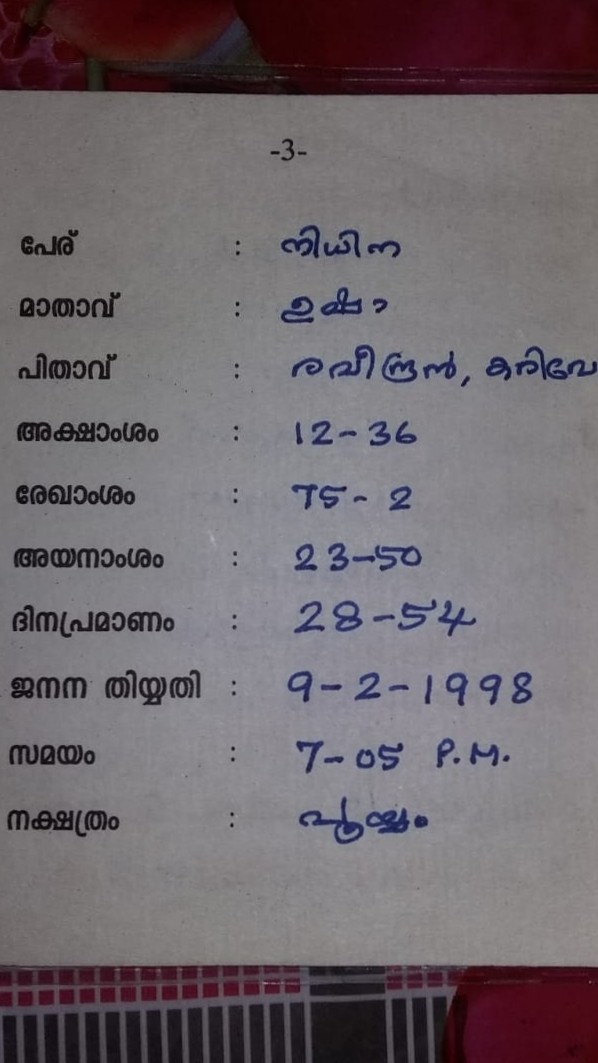 -3-
പേര് : നിധിന
മാതാവ് : ഉഷാ
പിതാവ് : രവീന്ദ്രൻ,
അക്ഷാംശം : 12-36
രേഖാംശം : 75-2
അയനാംശം : 23-50
ദിനപ്രമാണം : 28-54
ജനന തിയ്യതി : 9-2-1998
സമയം : 7-05 P.M.
നക്ഷത്രം : പൂയ്യം